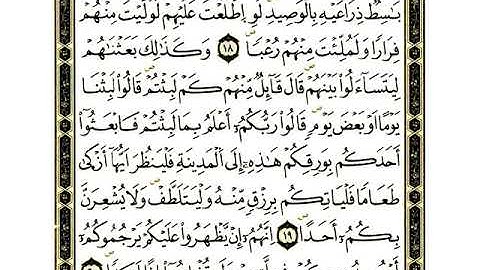 بَٰسِطٌ ذِرَاعَيْهِ بِالْوَصِيدِ لَوِ اِطَّلَعْتَ عَلَيْهِمْ لَوَلَّيْتَ مِنْهُمْ
فِرَارًا وَلَمُلِّئْتَ مِنْهُمْ رُعْبًا ١٨ وَكَذَٰلِكَ بَعَثْنَٰهُمْ
لِيَتَسَآءَلُوا بَيْنَهُمْ قَالَ قَآئِلٌ مِّنْهُمْ كَمْ لَبِثْتُمْ قَالُوا لَبِثْنَا
يَوْمًا اَوْ بَعْضَ يَوْمٍ قَالُوا رَبُّكُمُۥٓ أَعْلَمُ بِمَا لَبِثْتُمْ فَابْعَثُوٓا
أَحَدَكُم بِوَرِقِكُمْ هَٰذِهِۦٓ إِلَى الْمَدِينَةِ فَلْيَنظُرَ اَيُّهَآ أَزْكَىٰ
طَعَامًا فَلْيَاتِكُم بِرِزْقٍ مِّنْهُ وَلْيَتَلَطَّفْ وَلَا يُشْعِرَنَّ
بِكُمُۥٓ أَحَدًا ١٩ اِنَّهُمُۥٓ إِنْ يَّظْهَرُوا عَلَيْكُمْ يَرْجُمُوكُمُۥٓ